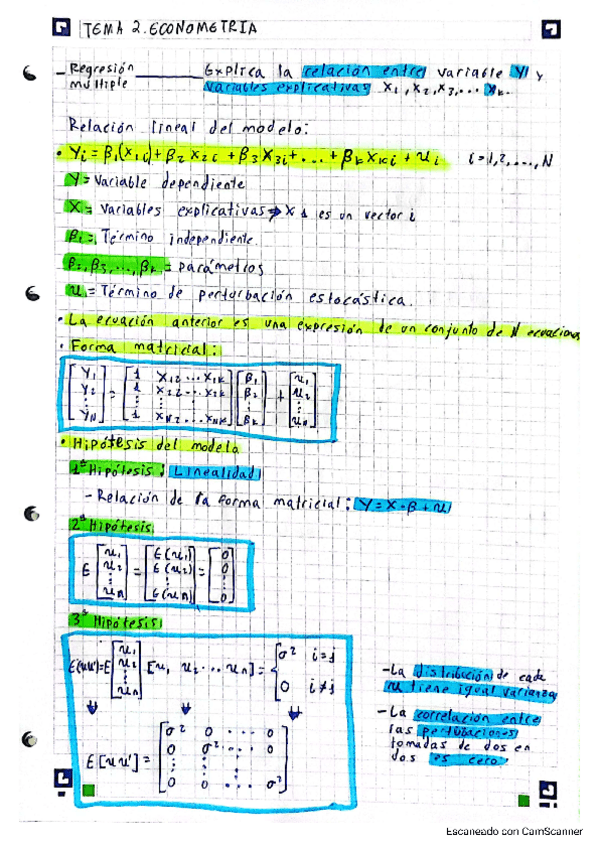 TEMA 2. ECONOMETRIA
- Regresión múltiple ______ Explica la relación entre variable Y y
variables explicativas X1, X2, X3,... Xk.
Relación lineal del modelo:
• Yi = β1(X1i) + β2 X2i + β3 X3i + ... + βk Xki + ui i=1,2,...,N
Y = Variable dependiente
X = Variables explicativas → X 1 es un vector i
β1 = Término independiente
β2, β3, ..., βk = parámetros
u = Término de perturbación estocástica.
• La ecuación anterior es una expresión de un conjunto de N ecuaciones
• Forma matricial:
[Y1 Y2 ⋮ YN] = [1 X12 ... X1K; 1 X22 ... X2K; ⋮; 1 XN2 ... XNK] [β1 β2 ⋮ βk] + [u1 u2 ⋮ uN]
• Hipótesis del modelo
1ª Hipótesis: Linealidad
- Relación de la forma matricial: Y = X · β + u
2ª Hipótesis
E [u1 u2 ⋮ un] = [E(u1) E(u2) ⋮ E(un)] = [0 0 ⋮ 0]
3ª Hipótesis
E(uu') = E [u1 u2 ⋮ un] [u1 u2 ... un] = { σ² i=j
0 i≠j
E[uu'] = [σ² 0 ... 0; 0 σ² ... 0; ⋮ ⋮ ⋮; 0 0 ... σ²]
- La distribución de cada
u tiene igual varianza
- La correlación entre
las perturbaciones
tomadas de dos en
dos es cero.
Escaneado con CamScanner